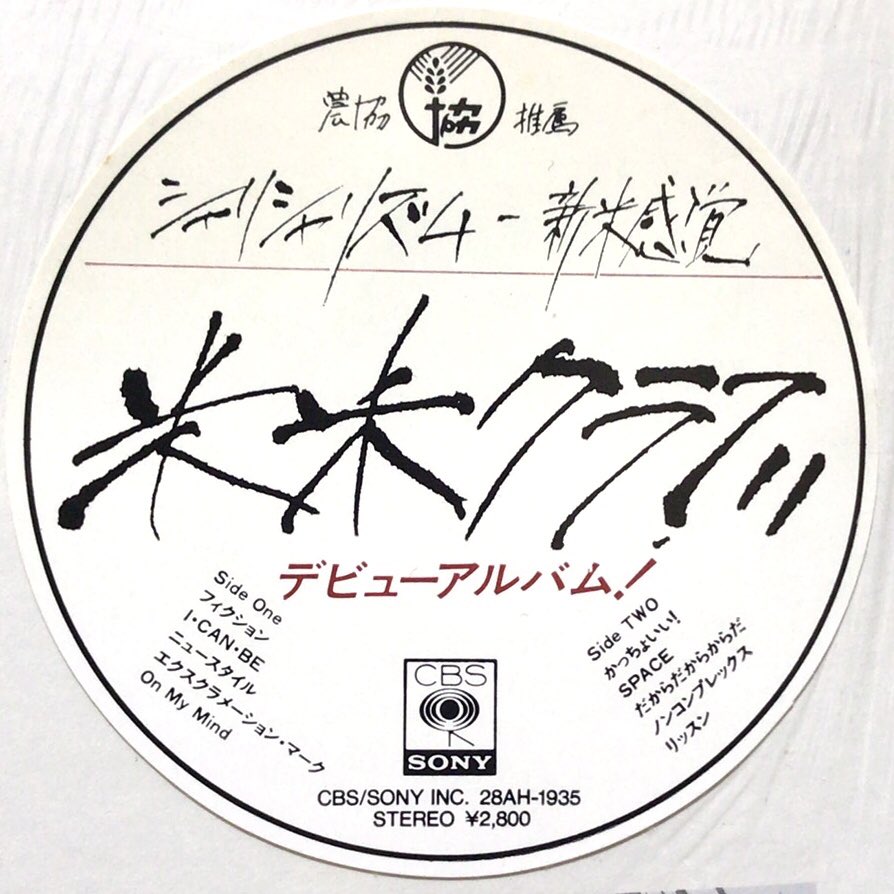 農協 協 推薦
シャリシャリズムー新米感覚
米米クラブ
デビューアルバム!
Side One
フィクション
I・CAN・BE
ニュースタイル
エクスクラメーション・マーク
On My Mind
Side TWO
かっちょいい!
SPACE
だからだからからだ
ノンコンプレックス
リッスン
CBS
SONY
CBS/SONY INC. 28AH-1935
STEREO ¥2,800